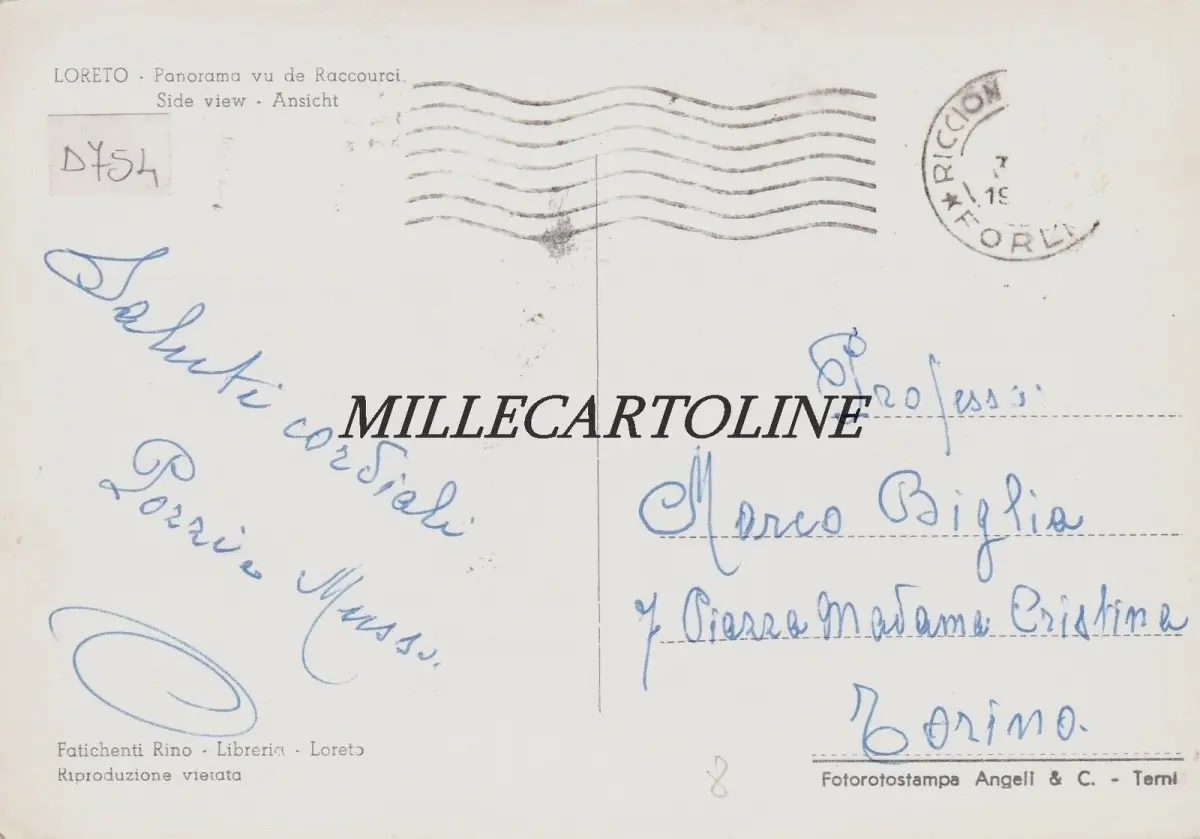 LORETO - Panorama vu de Raccourci
Side view - Ansicht
D754
RICCION
19
★ FORLI
Saluti cordiali
Musso
MILLECARTOLINE
Marco Biglia
7 Piazza Madama Cristina
Torino.
Fatichenti Rino - Libreria - Loreto
Riproduzione vietata
8
Fotorotostampa Angeli & C. - Terni